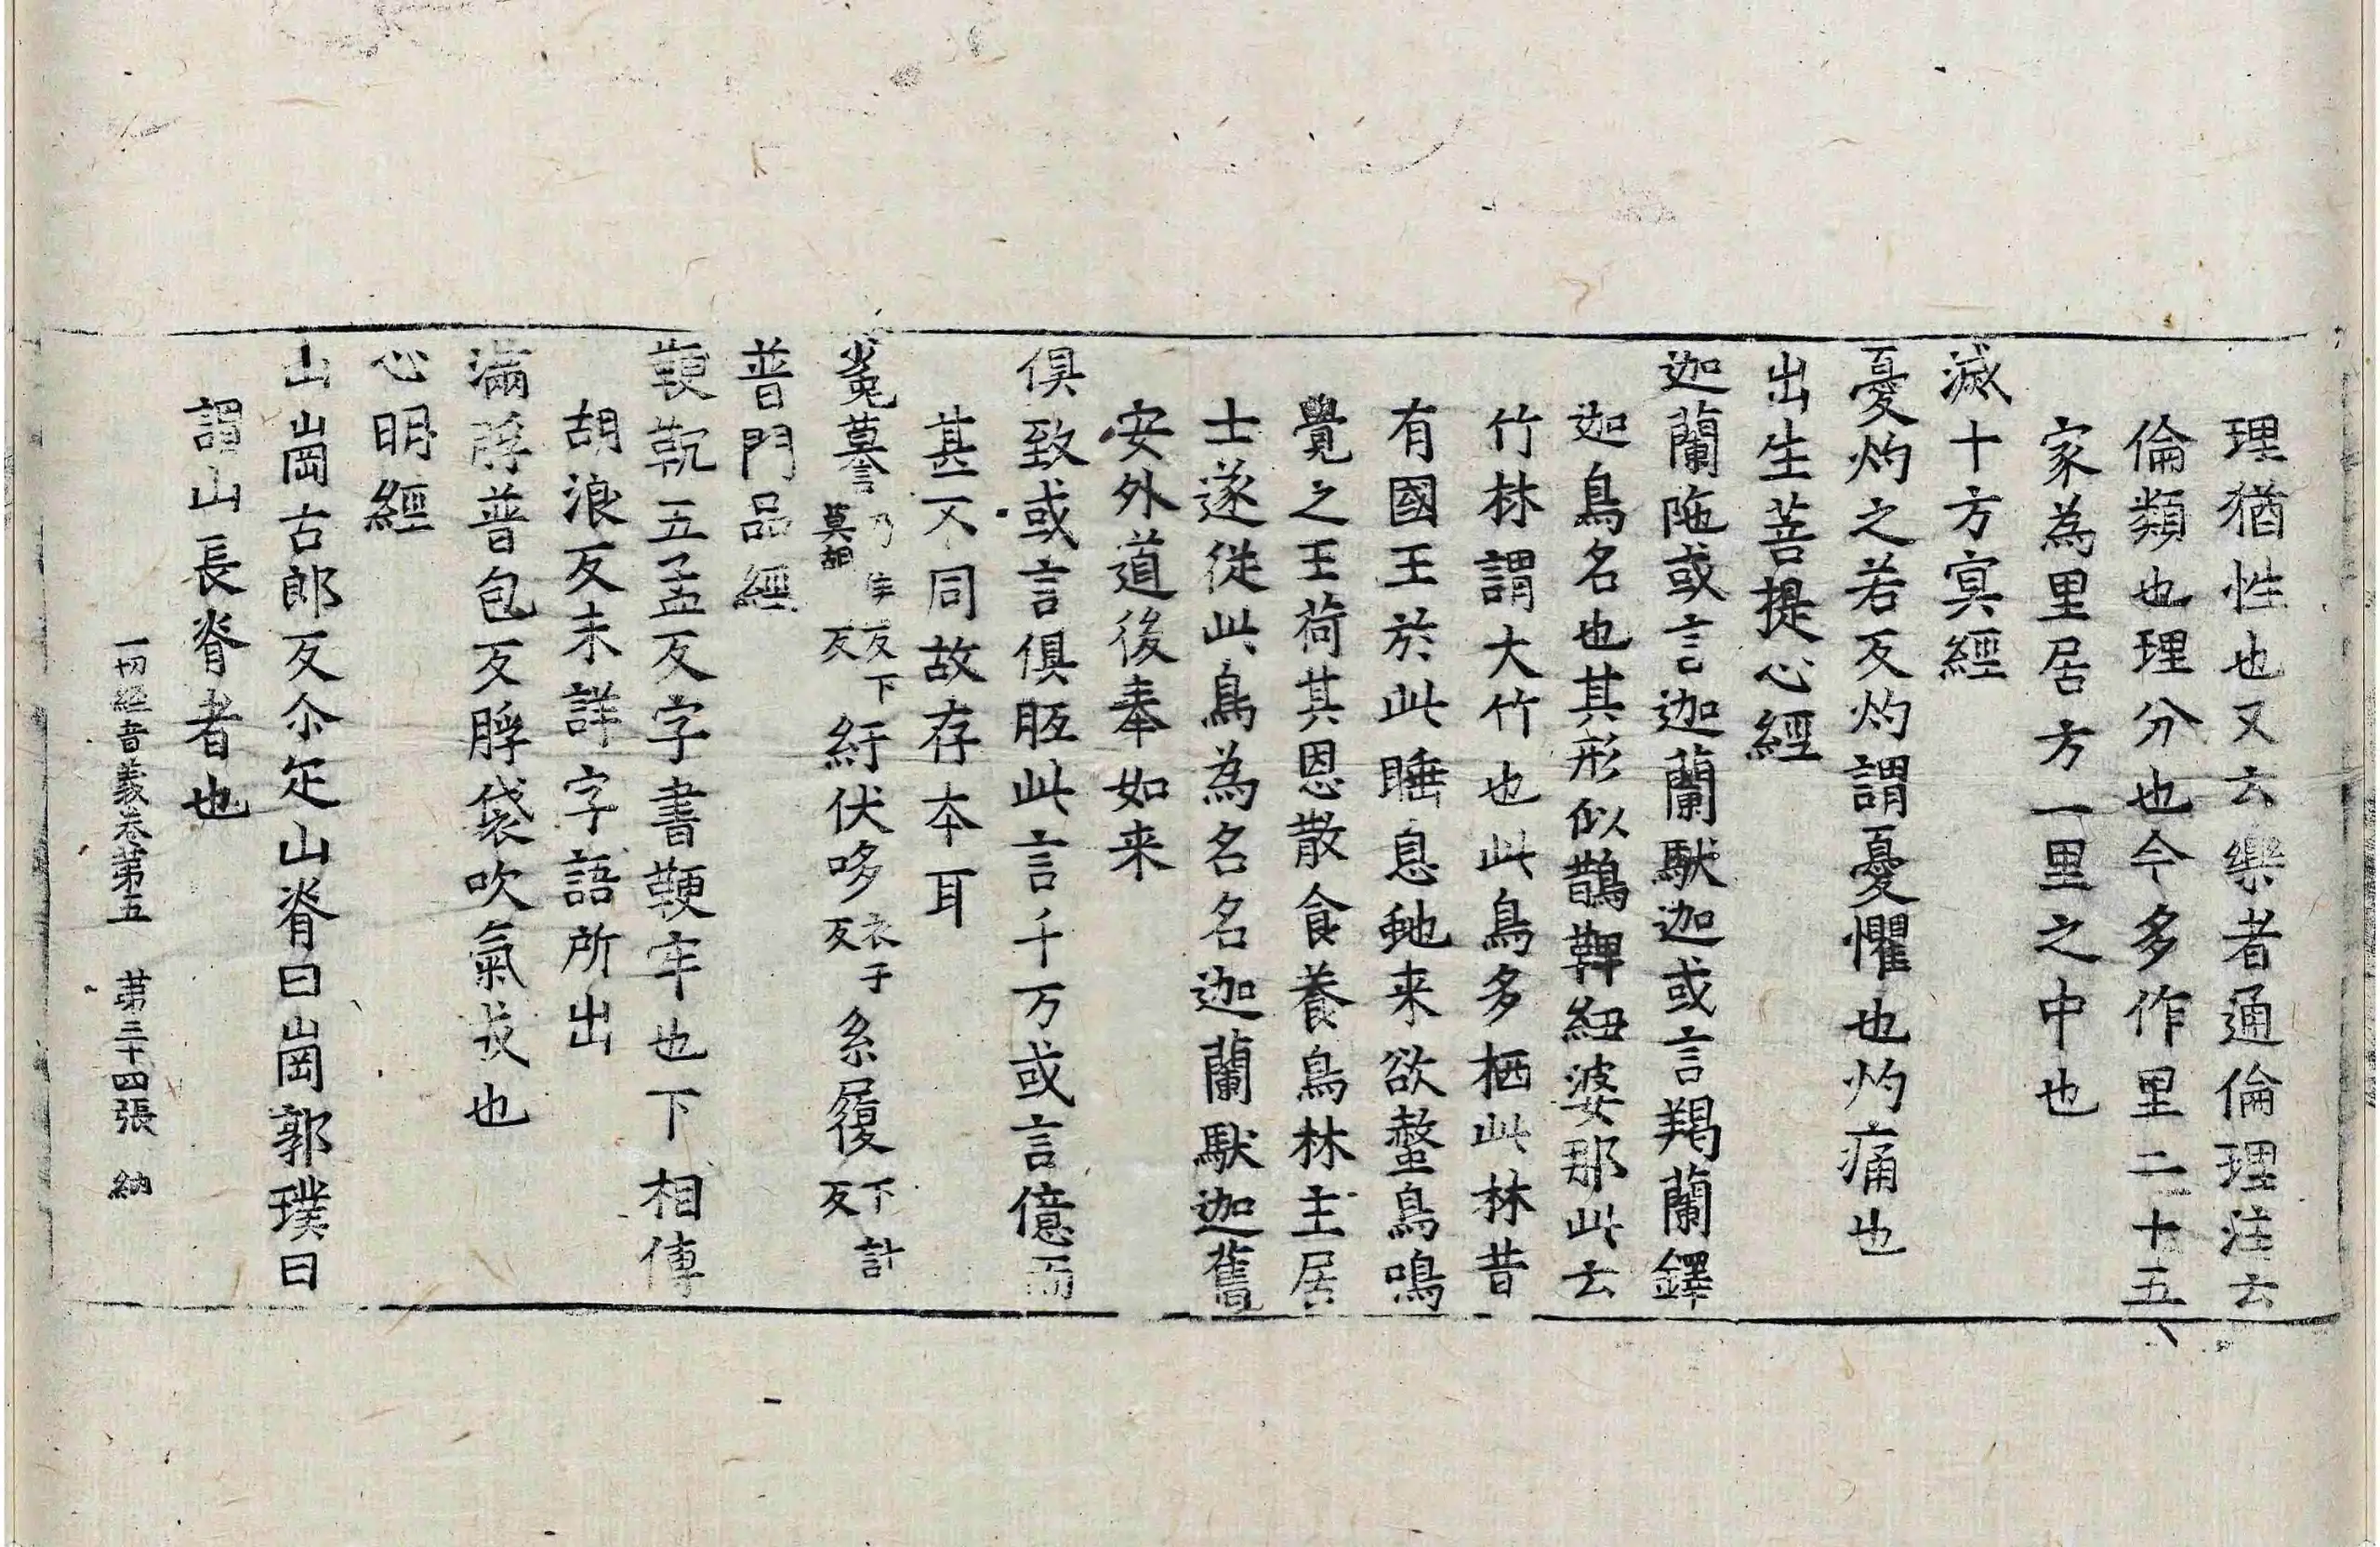 理猶性也又云樂者通倫理注云
倫類也理分也今多作里二十五
家為里居方一里之中也
滅十方冥經
憂灼之若反灼謂憂懼也灼痛也
出生菩提心經
迦蘭陁或言迦蘭䭾迦或言羯蘭鐸
迦鳥名也其形似鵲鞞紐婆那此云
竹林謂大竹也此鳥多栖此林昔
有國王於此睡息虵来欲螫鳥鳴
覺之王荷其恩散食養鳥林主居
士遂從此鳥為名名迦蘭䭾迦舊
安外道後奉如来
俱致或言俱胝此言千万或言億而
甚不同故存本耳
㝹䜈乃牟反下莫胡反紆伏哆衣于反系履下計反
普門品經
鞕䩑五孟反字書鞕牢也下相傳
胡浪反未詳字語所出
滿脬普包反脬袋吹氣者也
心明經
山崗古郎反尒疋山脊曰崗郭璞曰
謂山長脊者也
一切經音義卷第五　第三十四張　納